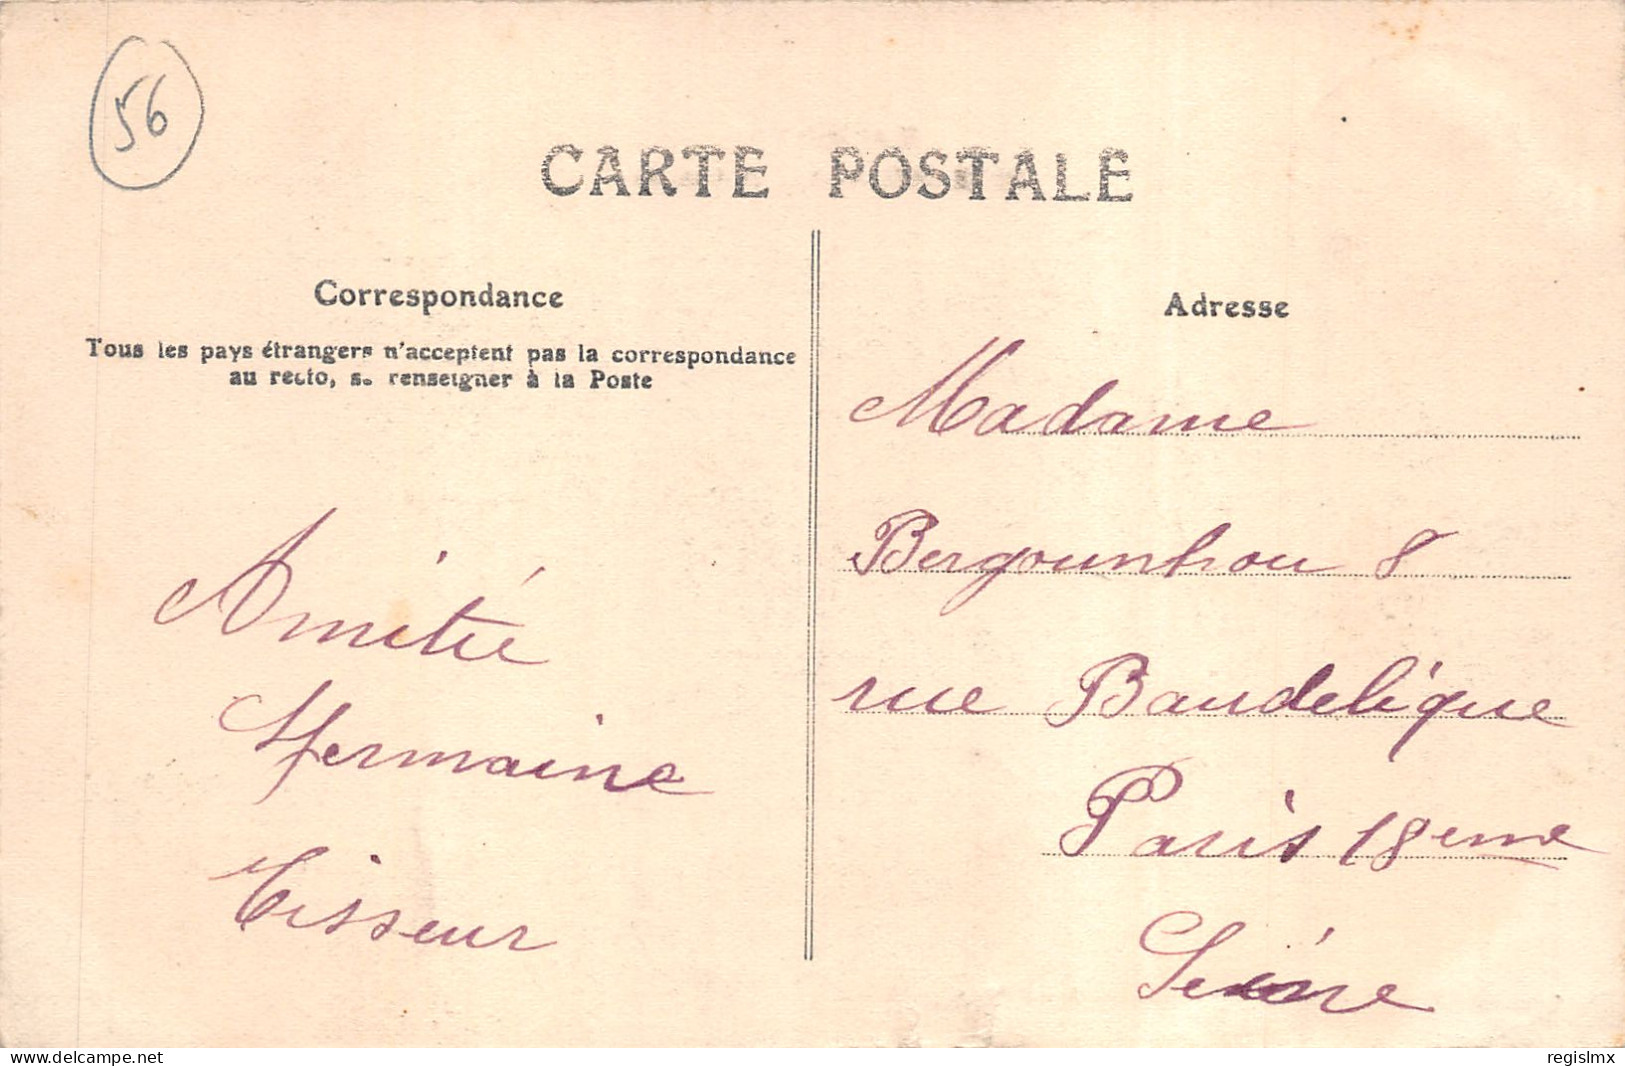 56
CARTE POSTALE
Correspondance
Tous les pays étrangers n'acceptent pas la correspondance
au recto, se renseigner à la Poste
Amitié
Germaine
Tisseur
Adresse
Madame
Bergounhou 8
rue Baudelique
Paris 18eme
Seine
www.delcampe.net
regislmx